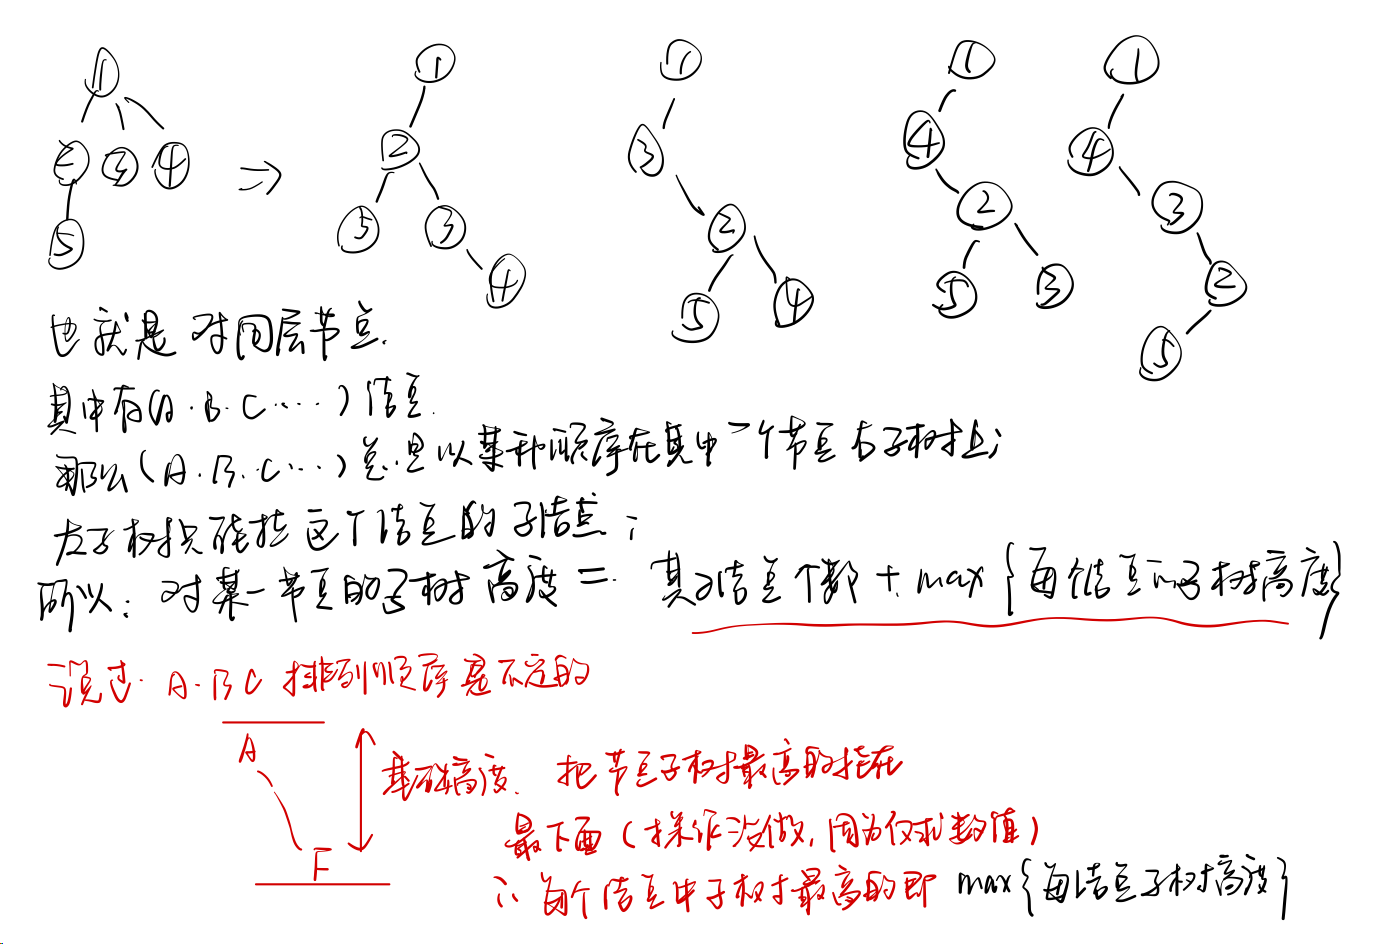 1 1 1 1 1
2 3 4 ⇒ 2 3 4 4
5 5 3 2 2 3
4 5 4 5 3 2
5
也就是对同层节点.
其中有(A.B.C....)结点.
那么(A.B.C...)总是以某种顺序在其中一个节点右子树上;
左子树只能挂这个结点的子结点;
所以: 对某一节点的子树高度 = 其子结点个数 + max{每个结点的子树高度}
说过. A.B C 排列顺序是不定的
A
基础高度. 把节点子树最高的挂在
最下面(操作没做,因为仅求数值)
F
∴ 每个结点中子树最高的即 max{每结点子树高度}